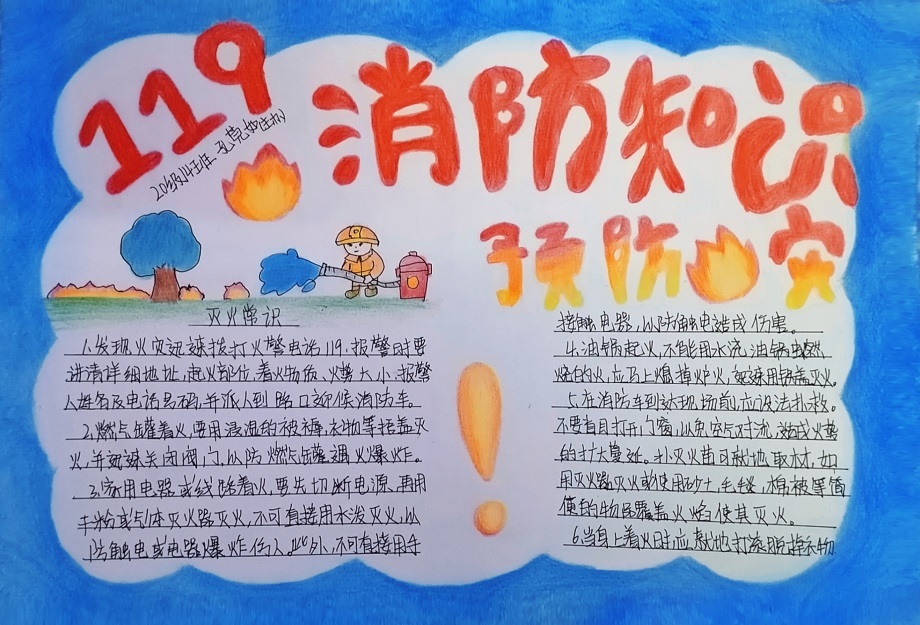 119
消防知识
20级14班
预防火灾
灭火常识
1.发现火灾迅速拨打火警电话119.报警时要
讲清详细地址,起火部位,着火物质、火势大小、报警
人姓名及电话号码,并派人到路口迎候消防车。
2.燃气罐着火,要用浸湿的被褥、衣物等捂盖灭
火,并迅速关闭阀门,以防燃气罐遇火爆炸。
3.家用电器或线路着火,要先切断电源、再用
干粉或气体灭火器灭火,不可直接用水泼灭火,以
防触电或电器爆炸伤人。此外,不可直接用手
接触电器,以防触电造成伤害。
4.油锅起火,不能用水浇油锅中燃
烧的火,应马上熄掉炉火,迅速用锅盖灭火。
5.在消防车到达现场前,应设法扑救。
不要盲目打开门窗,以免空气对流,造成火势
的扩大蔓延。扑灭火苗可就地取材,如
用灭火器灭火或使用砂土,毛毯,棉被等简
便的物品覆盖火焰使其灭火。
6.当身上着火时,应就地打滚,脱掉衣物